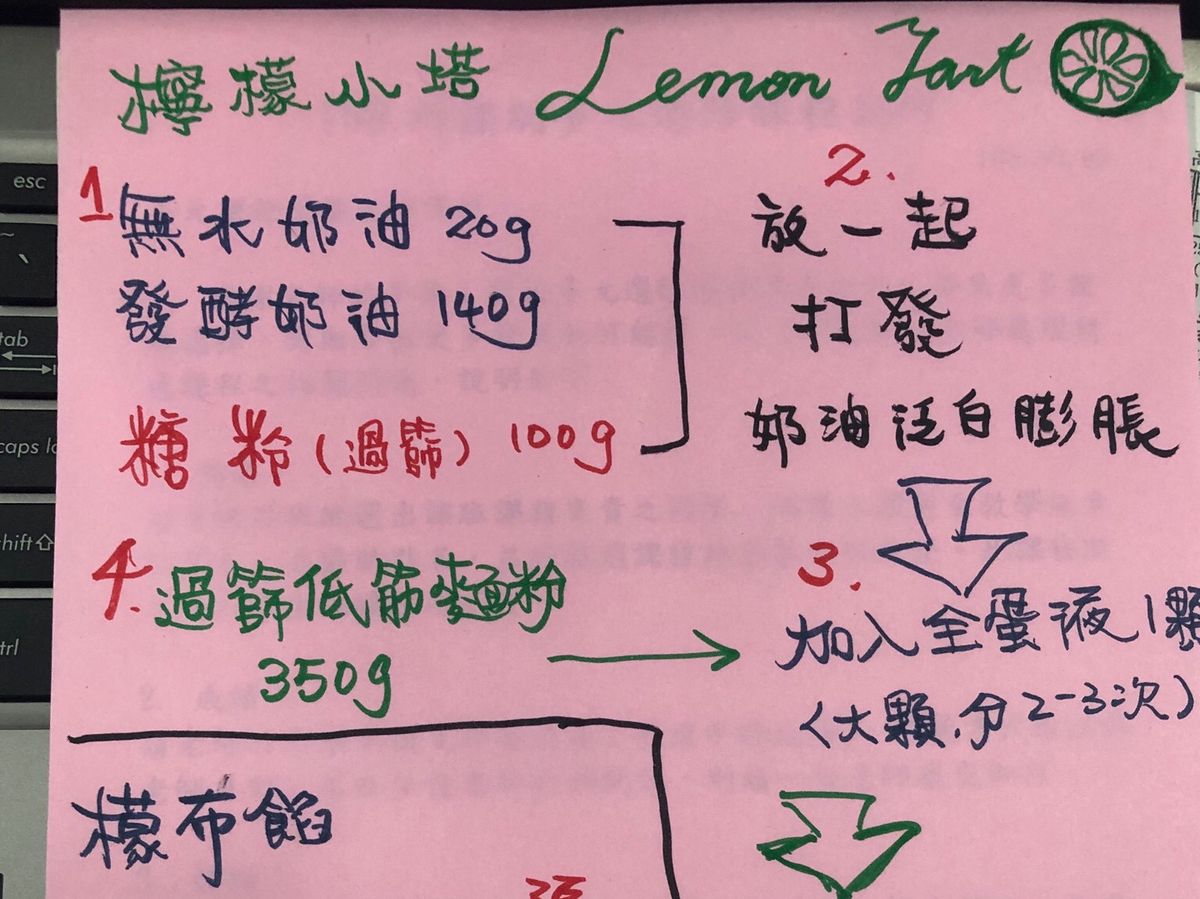 檸檬小塔 Lemon Tart
1 無水奶油 20g
發酵奶油 140g
糖粉(過篩) 100g
2.
放一起
打發
奶油泛白膨脹
3.
加入全蛋液1顆
(大顆.分2-3次)
4. 過篩低筋麵粉
350g
檬布餡
esc
tab
caps lo
shift
ctrl